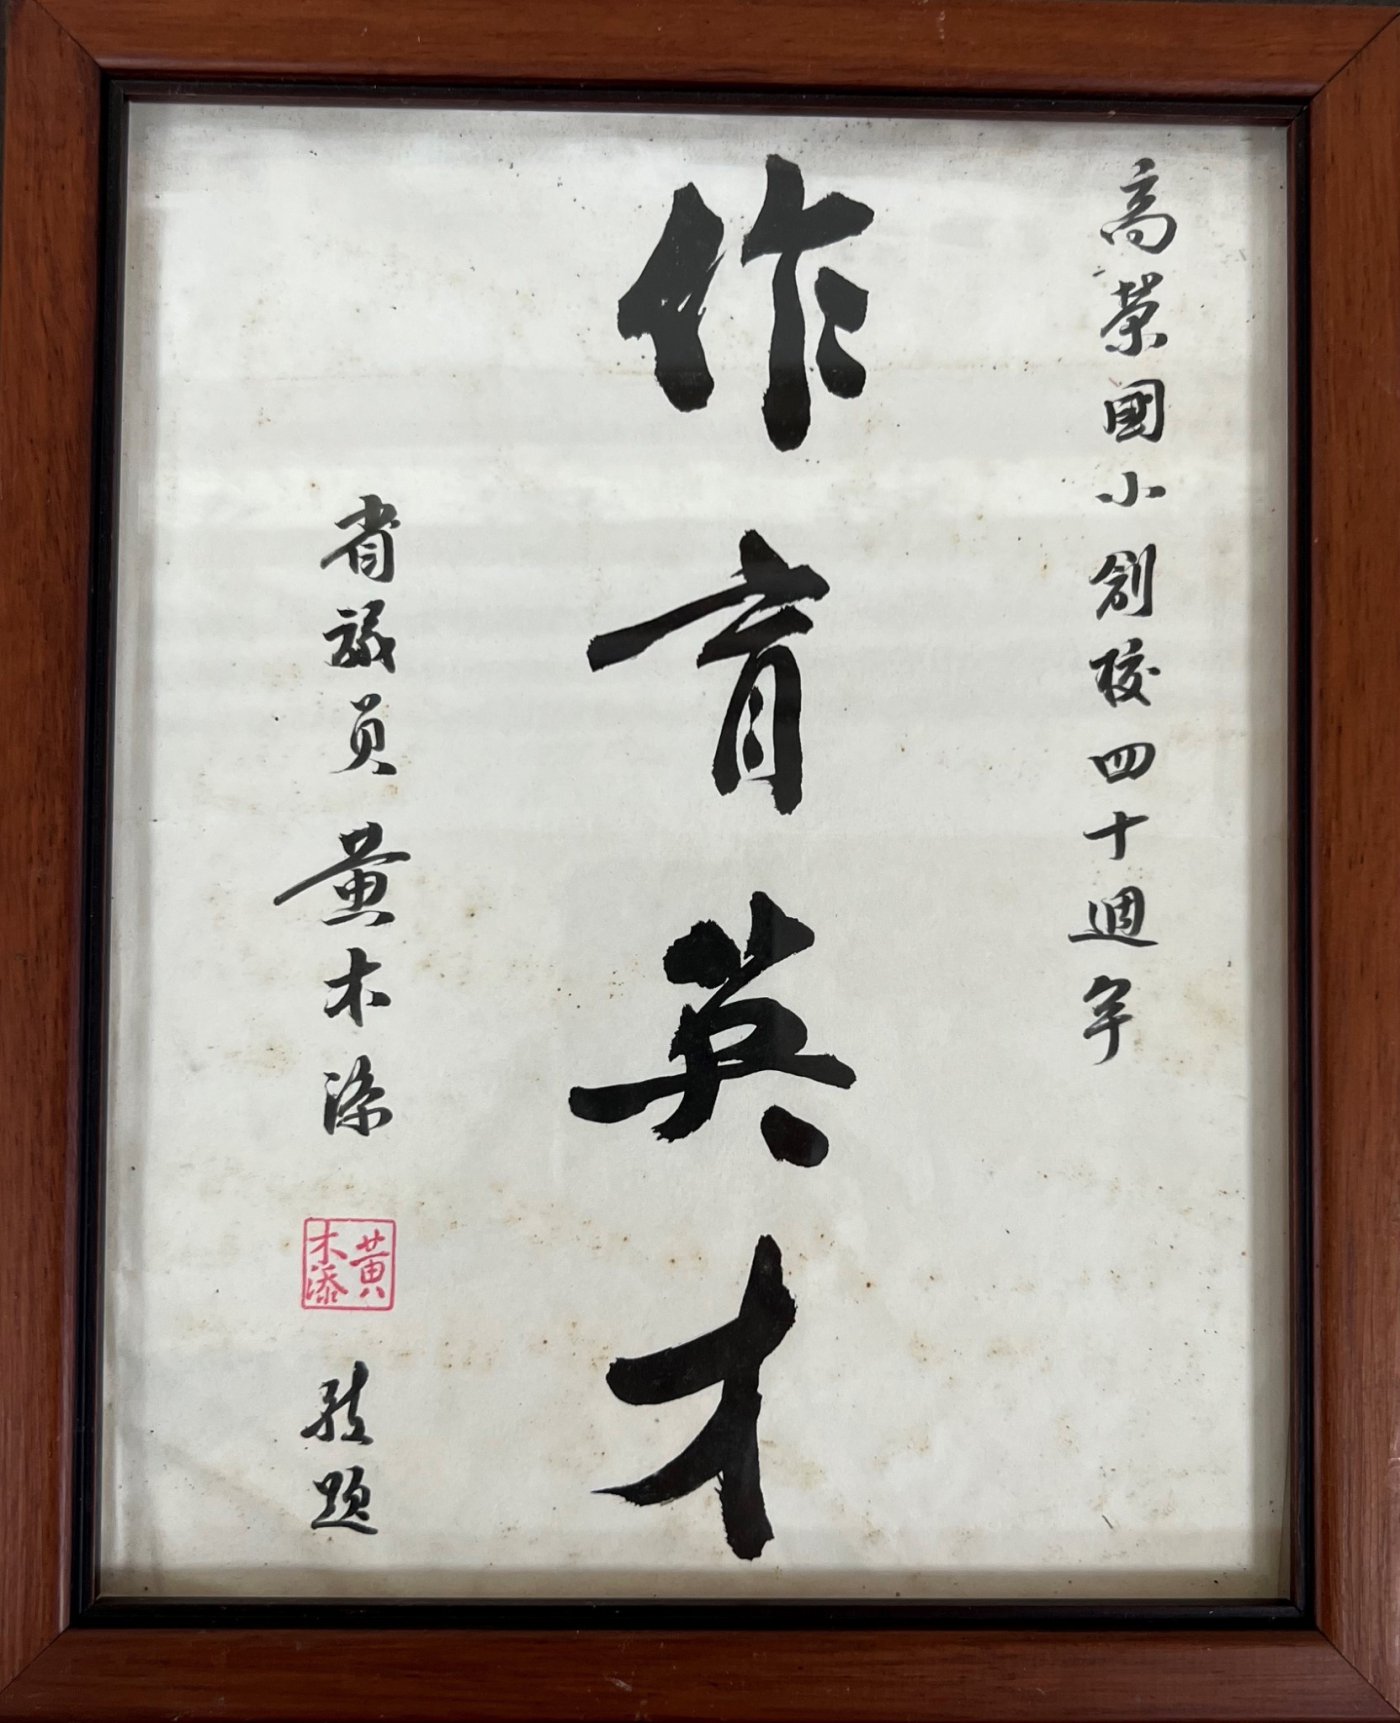 高榮國小創校四十週年
作育英才
省議員黃木添
黃木添
敬題